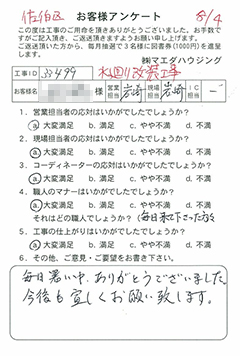 佐伯区 お客様アンケート 8/4
この度は工事のご用命を頂きありがとうございました。お手数で
すがご記入頂き、ご返送頂きますようお願い申し上げます。
ご返送頂いた方から、毎月抽選で3名様に図書券(1000円)を進呈
します。
㈱マエダハウジング
工事ID 33499 水回り改装工事
お客様名 様 営業担当 岩崎 現場担当 岩崎 IC担当 -
1．営業担当者の応対はいかがでしたでしょうか？
a.大変満足 b.満足 c.やや不満 d.不満
2．現場担当者の応対はいかがでしたでしょうか？
a.大変満足 b.満足 c.やや不満 d.不満
3．コーディネーターの応対はいかがでしたでしょうか？
a.大変満足 b.満足 c.やや不満 d.不満
4．職人のマナーはいかがでしたでしょうか？
a.大変満足 b.満足 c.やや不満 d.不満
それはどの職人でしょうか？(毎日来て下さった方々)
5．工事の仕上がりはいかがでしたでしょうか？
a.大変満足 b.満足 c.やや不満 d.不満
6．その他、ご意見・ご要望をお書き下さい。
毎日暑い中、ありがとうございました。
今後も宜しくお願い致します。